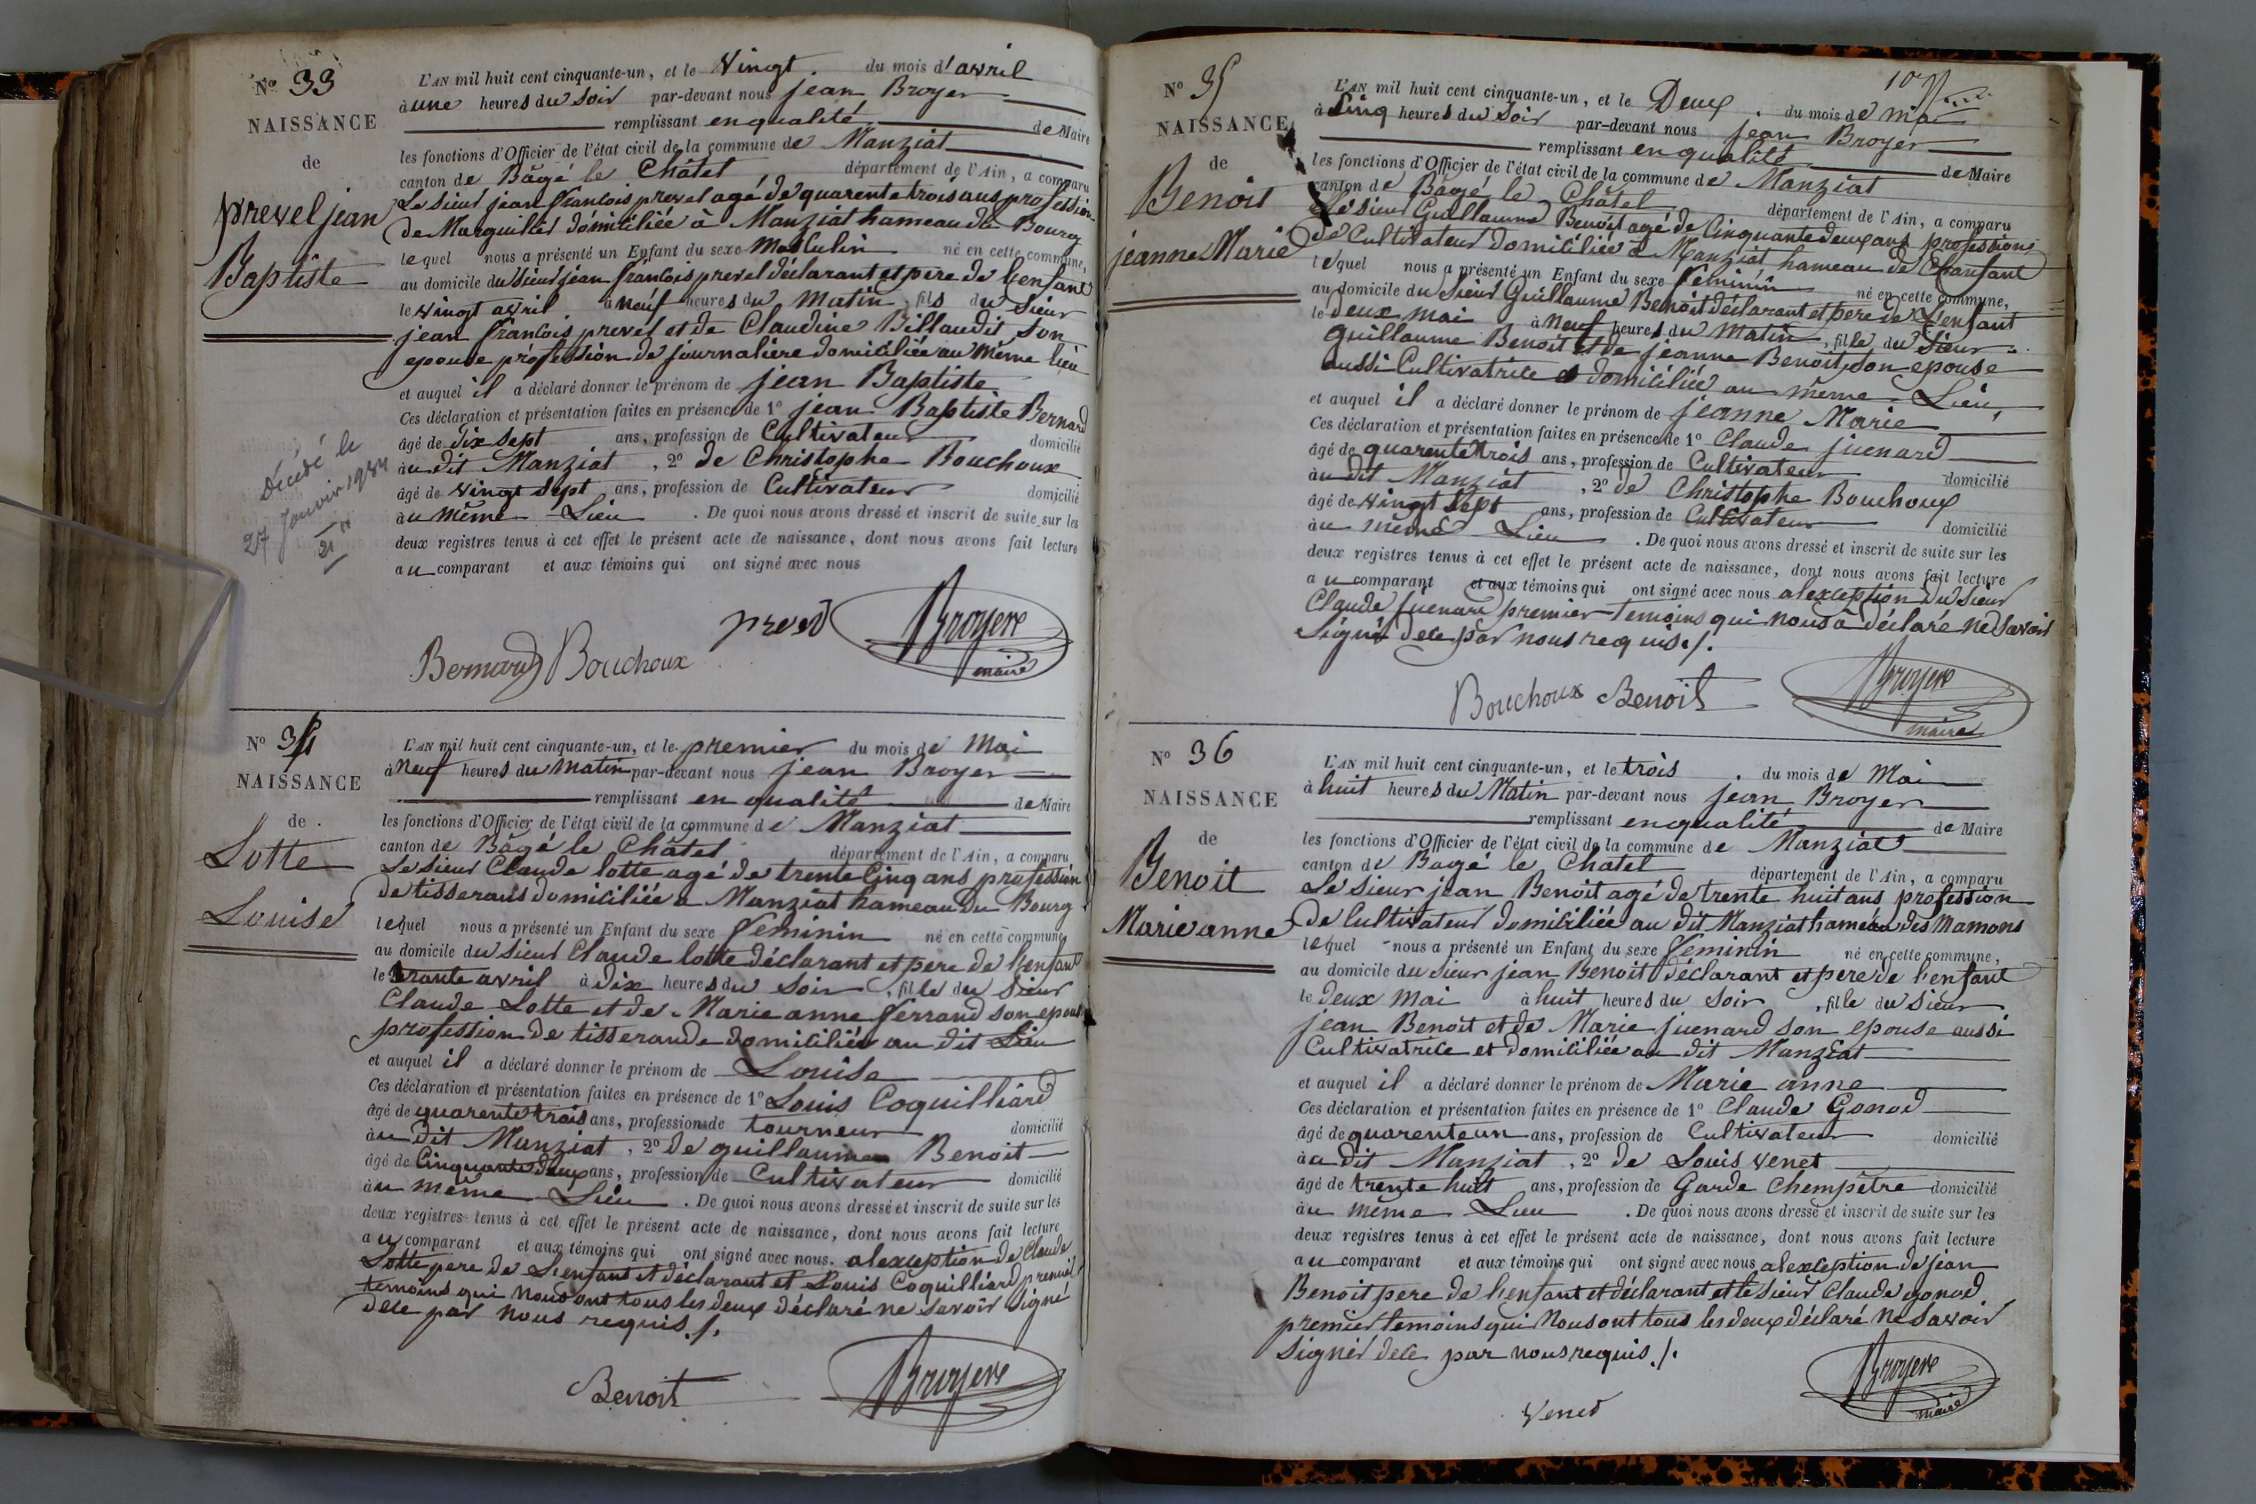 N° 33
NAISSANCE
de
prevel jean
Baptiste
L'AN mil huit cent cinquante-un, et le Vingt . du mois d'avril
à une heures du soir par-devant nous jean Broyer
remplissant en qualité de Maire
les fonctions d'Officier de l'état civil de la commune de Manziat
canton de Bâgé le Châtel département de l'Ain, a comparu
Le sieur jean francois prevel agé de quarente trois ans profession
de Marguillier domiciliée à Manziat hameau du Bourg
lequel nous a présenté un Enfant du sexe Masculin né en cette commune,
au domicile du sieur jean francois prevel déclarant et pere de lenfant
le vingt avril à neuf heures du matin, fils du Sieur
jean francois prevel et de Claudine Billaudit son
epouse profession de journaliere domiciliée au même lieu
et auquel il a déclaré donner le prénom de jean Baptiste
Ces déclaration et présentation faites en présence de 1° jean Baptiste Bernard
âgé de dix sept ans, profession de Cultivateur domicilié
au dit Manziat , 2° de Christophe Bouchoux
âgé de vingt sept ans, profession de Cultivateur domicilié
au même Lieu . De quoi nous avons dressé et inscrit de suite sur les
deux registres tenus à cet effet le présent acte de naissance, dont nous avons fait lecture
au comparant et aux témoins qui ont signé avec nous
Décédé le
27 Janvier 1934
Bernard Bouchoux prevel Broyere
maire
N° 34
NAISSANCE
de
Lotte
Louise
L'AN mil huit cent cinquante-un, et le premier du mois de Mai
à Neuf heures du matin par-devant nous jean Broyer
remplissant en qualité de Maire
les fonctions d'Officier de l'état civil de la commune de Manziat
canton de Bâgé le Châtel département de l'Ain, a comparu
Le sieur Claude lotte agé de trente Cinq ans profession
de tisserans domiciliée a Manziat hameau du Bourg
lequel nous a présenté un Enfant du sexe feminin né en cette commune
au domicile du sieur Claude lotte déclarant et pere de lenfant
le trante avril à dix heures du Soir, fille du Sieur
Claude Lotte et de Marie anne ferrand son epouse
profession de tisserande domiciliée au dit Lieu
et auquel il a déclaré donner le prénom de Louise
Ces déclaration et présentation faites en présence de 1° Louis Coquilliard
âgé de quarente trois ans, profession de tourneur domicilié
au dit Manziat , 2° de guillaume Benoit
âgé de Cinquante deux ans, profession de Cultivateur domicilié
au même Lieu . De quoi nous avons dressé et inscrit de suite sur les
deux registres tenus à cet effet le présent acte de naissance, dont nous avons fait lecture
au comparant et aux témoins qui ont signé avec nous. alexception de Claude
Lotte pere de Lenfant et déclarant et Louis Coquilliard premier
temoins qui nous ont tous les deux déclaré ne savoir Signé
dece par nous requis ./.
Benoit Broyere
N° 35
NAISSANCE
de
Benoit
jeanne Marie
107
L'AN mil huit cent cinquante-un, et le Deux . du mois de mai
à Sinq heures du Soir par-devant nous jean Broyer
remplissant en qualité de Maire
les fonctions d'Officier de l'état civil de la commune de Manziat
canton de Bagé le Châtel département de l'Ain, a comparu
Le sieur Guillaume Benoit agé de Cinquante deux ans profession
de Cultivateur domiciliée à Manziat hameau de Chanfant
lequel nous a présenté un Enfant du sexe feminin né en cette commune,
au domicile du sieur Guillaume Benoit déclarant et pere de Lenfant
le deux mai à Neuf heures du matin, fille du Sieur
guillaume Benoit et de jeanne Benoit son epouse
aussi Cultivatrice domiciliée au même Lieu,
et auquel il a déclaré donner le prénom de jeanne Marie
Ces déclaration et présentation faites en présence de 1° Claude juenard
âgé de quarente trois ans, profession de Cultivateur domicilié
au dit Manziat , 2° de Christophe Bouchoux
âgé de vingt sept ans, profession de Cultivateur domicilié
au même Lieu . De quoi nous avons dressé et inscrit de suite sur les
deux registres tenus à cet effet le présent acte de naissance, dont nous avons fait lecture
au comparant et aux témoins qui ont signé avec nous alexception du sieur
Claude juenard premier Temoins qui nous a déclaré ne savoir
Signé dece par nous requis ./.
Bouchoux Benoit Broyere
maire
N° 36
NAISSANCE
de
Benoit
Marie anne
L'AN mil huit cent cinquante-un, et le trois . du mois de Mai
à huit heures du Matin par-devant nous jean Broyer
remplissant en qualité de Maire
les fonctions d'Officier de l'état civil de la commune de Manziat
canton de Bagé le Chatel département de l'Ain, a comparu
Le sieur jean Benoit agé de trente huit ans profession
de Cultivateur domiciliée au dit Manziat hameau des Mamons
lequel nous a présenté un Enfant du sexe feminin né en cette commune,
au domicile du sieur jean Benoit déclarant et pere de lenfant
le deux Mai à huit heures du Soir, fille du sieur
jean Benoit et de Marie juenard son epouse aussi
Cultivatrice et domiciliée au dit Manziat
et auquel il a déclaré donner le prénom de Marie anne
Ces déclaration et présentation faites en présence de 1° Claude Gonod
âgé de quarente un ans, profession de Cultivateur domicilié
au dit Manziat , 2° de Louis venet
âgé de trente huit ans, profession de Garde Chempètre domicilié
au même Lieu . De quoi nous avons dressé et inscrit de suite sur les
deux registres tenus à cet effet le présent acte de naissance, dont nous avons fait lecture
au comparant et aux témoins qui ont signé avec nous alexception de jean
Benoit pere de lenfant et déclarant et le sieur Claude gonod
premier temoins qui Nous ont tous les deux déclaré Ne Savoir
Signér dece par nous requis ./.
Venet Broyere
maire